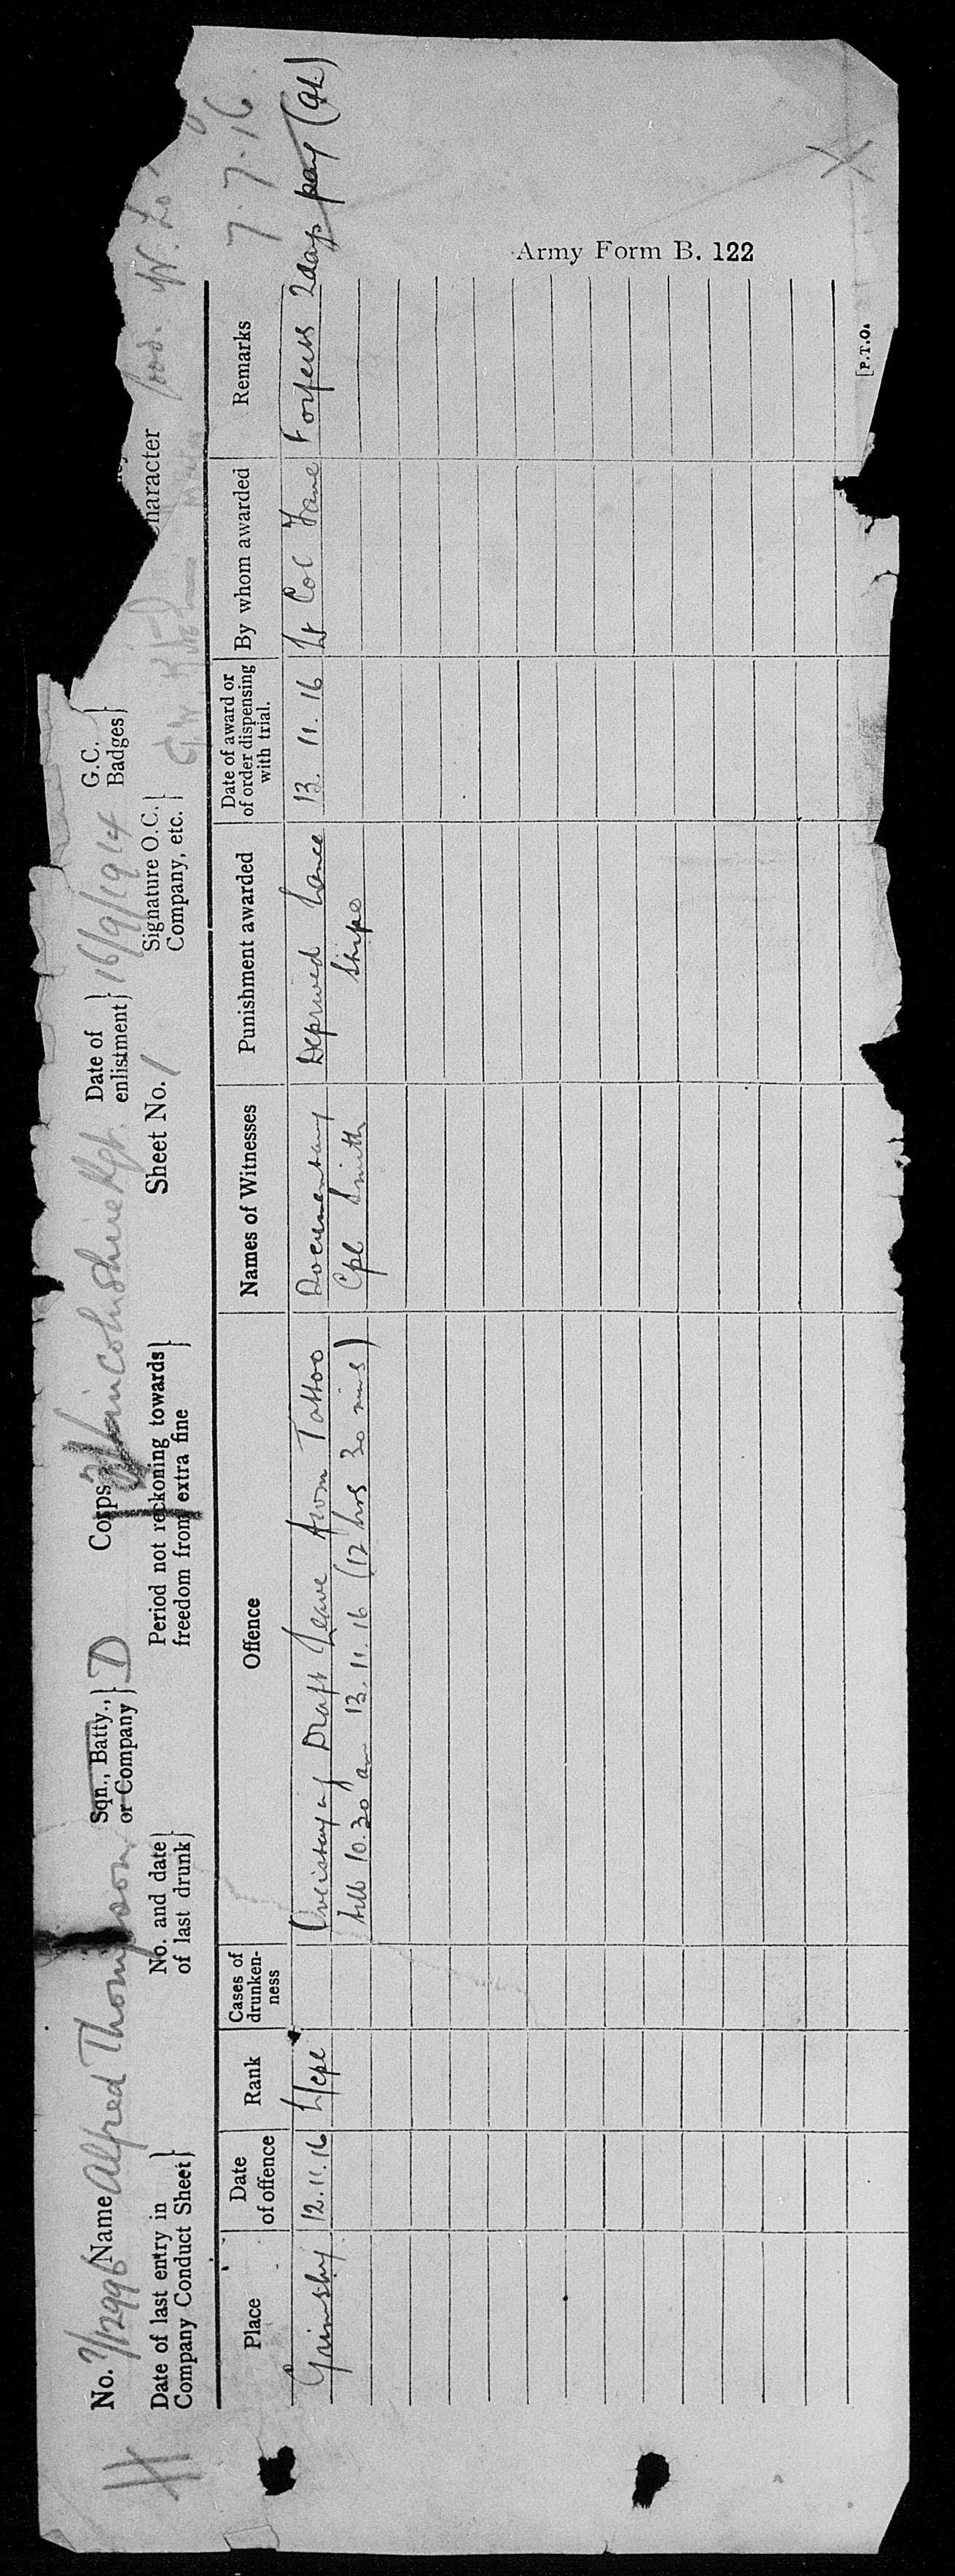 Army Form B. 122
No. 7/12996 Name Alfred Thompson Sqn., Batty., or Company } D Corps Lincolnshire Rgt. Date of enlistment } 16/9/1914 G.C. Badges }
Date of last entry in Company Conduct Sheet } No. and date of last drunk } Period not reckoning towards freedom from extra fine } Sheet No. 1 Signature O.C. Company, etc. } Character
7.7.16
Place Date of offence Rank Cases of drunken-ness Offence Names of Witnesses Punishment awarded Date of award or of order dispensing with trial. By whom awarded Remarks
Grimsby 12.11.16 L/cpl Overstaying Draft Leave from Tattoo Documentary Deprived Lance 13.11.16 Lt Col Fane Forfeits 2 days pay
till 10.30 am 13.11.16 (12 hrs 30 mins) Cpl Smith Stripe
[P.T.O.